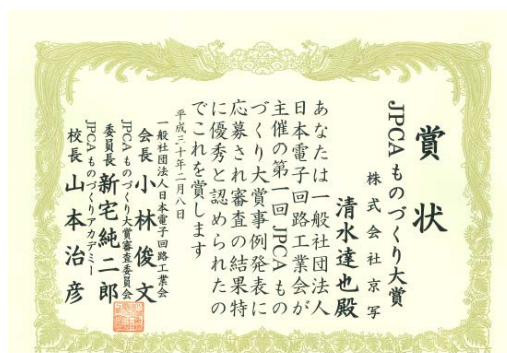 賞状
JPCAものづくり大賞
株式会社京写
清水達也殿
あなたは一般社団法人
日本電子回路工業会が
主催の第一回JPCAもの
づくり大賞事例発表に
応募され審査の結果特
に優秀と認められたの
でこれを賞します
平成三十年二月八日
一般社団法人日本電子回路工業会
会長小林俊文
JPCAものづくり大賞審査委員会
委員長新宅純二郎
JPCAものづくりアカデミー
校長山本治彦